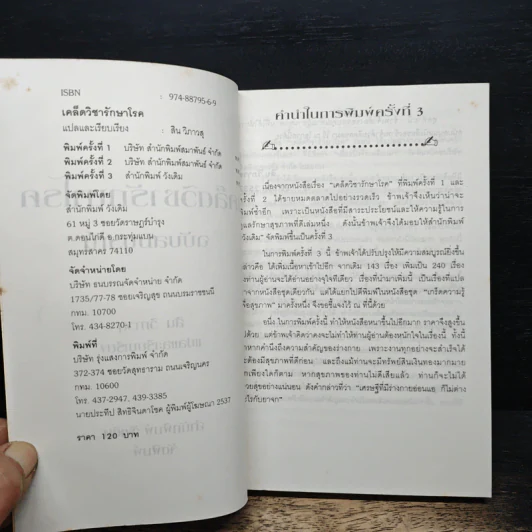 ISBN : 974-88795-6-9
เคล็ดวิชารักษาโรค
แปลและเรียบเรียง : สิน วิภาวสุ
พิมพ์ครั้งที่ 1 บริษัท สำนักพิมพ์สมาพันธ์ จำกัด
พิมพ์ครั้งที่ 2 บริษัท สำนักพิมพ์สมาพันธ์ จำกัด
พิมพ์ครั้งที่ 3 สำนักพิมพ์ วังเดิม
จัดพิมพ์โดย
สำนักพิมพ์ วังเดิม
61 หมู่ 3 ซอยวัดราษฎร์บำรุง
ต.ดอนไก่ดี อ.กระทุ่มแบน
สมุทรสาคร 74110
จัดจำหน่ายโดย
บริษัท ธนบรรณจัดจำหน่าย จำกัด
1735/77-78 ซอยเจริญสุข ถนนบรมราชชนนี
กทม. 10700
โทร. 434-8270-1
พิมพ์ที่
บริษัท รุ่งแสงการพิมพ์ จำกัด
372-374 ซอยวัดสุทธาราม ถนนเจริญนคร
กทม. 10600
โทร. 437-2947, 439-3385
นายประทีป สิทธิจินดาโชค ผู้พิมพ์ผู้โฆษณา 2537
ราคา 120 บาท
คำนำในการพิมพ์ครั้งที่ 3
เนื่องจากหนังสือเรื่อง "เคล็ดวิชารักษาโรค" ที่พิมพ์ครั้งที่ 1 และ
ครั้งที่ 2 ได้ขายหมดตลาดไปอย่างรวดเร็ว ข้าพเจ้าจึงเห็นว่าน่าจะ
พิมพ์ซ้ำอีก เพราะเป็นหนังสือที่มีสาระประโยชน์และให้ความรู้ในการ
ดูแลรักษาสุขภาพที่ดีเล่มหนึ่ง ดังนั้นข้าพเจ้าจึงได้มอบให้สำนักพิมพ์
วังเดิม" จัดพิมพ์ขึ้นเป็นครั้งที่ 3
ในการพิมพ์ครั้งที่ 3 นี้ ข้าพเจ้าได้ปรับปรุงให้มีความสมบูรณ์ยิ่งขึ้น
กล่าวคือ ได้เพิ่มเนื้อหาเข้าไปอีก จากเดิม 143 เรื่อง เพิ่มเป็น 240 เรื่อง
ท่านผู้อ่านจะได้อ่านอย่างจุใจทีเดียว เรื่องที่นำมาเพิ่มนี้ เป็นเรื่องที่แปล
จากหนังสือชุดเดียวกัน แต่ได้แยกไปตีพิมพ์ในหนังสือ ชุด "เกร็ดความรู้
เพื่อสุขภาพ" มาครั้งหนึ่ง จึงขอชี้แจงไว้ ณ ที่นี้ด้วย
อนึ่ง ในการพิมพ์ครั้งนี้ ทำให้หนังสือหนาขึ้นไปอีกมาก ราคาจึงสูงขึ้น
แต่ข้าพเจ้าคิดว่าคงจะไม่ทำให้ท่านผู้อ่านต้องหนักใจในเรื่องนี้ ทั้งนี้
หากคำนึงถึงความสำคัญของร่างกาย เพราะงานทุกอย่างจะสำเร็จได้
ต้องมีสุขภาพที่ดีก่อน และถึงแม้ท่านจะมีทรัพย์สินเงินทองมากมาย
เพียงใดก็ตาม หากสุขภาพของท่านไม่ดีเสียแล้ว ท่านก็จะไม่ได้
สุขอย่างแน่นอน ดังคำกล่าวที่ว่า "เศรษฐีที่มีร่างกายอ่อนแอ ก็ไม่ต่าง
อะไรกับยาจก"